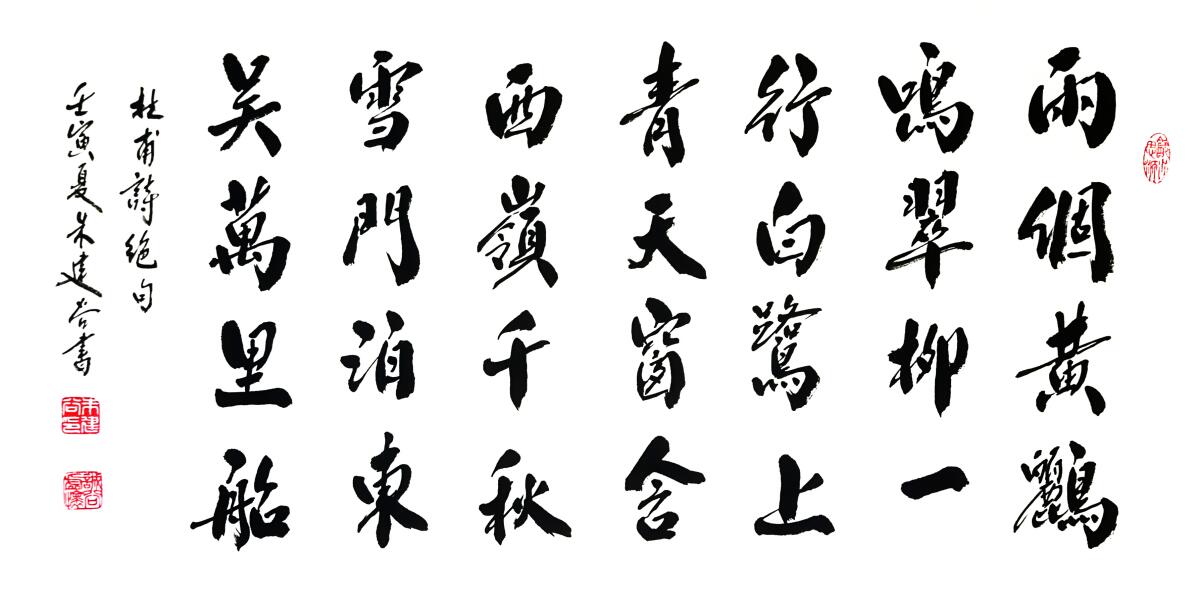 兩個黃鸝
鳴翠柳一
行白鷺上
青天窗含
西嶺千秋
雪門泊東
吴萬里船
杜甫詩絕句
壬寅夏朱建書
朱建